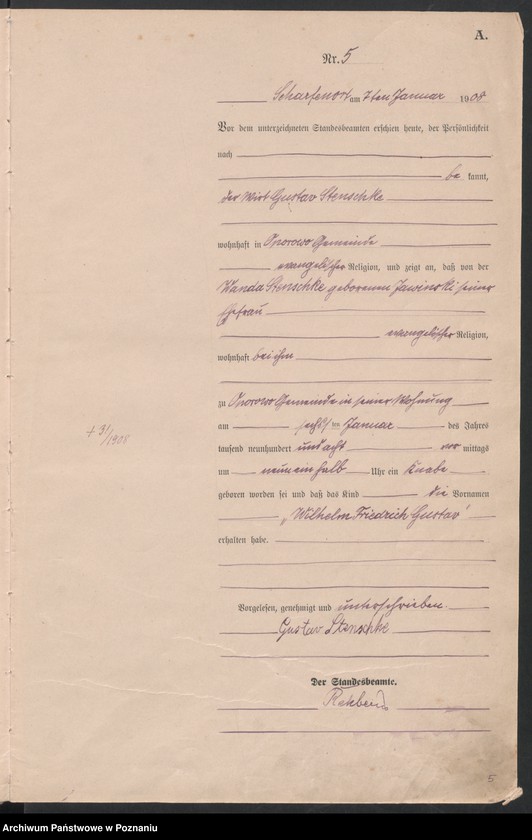 A.
Nr. 5
Scharfenort am 7ten Januar 1908
Vor dem unterzeichneten Standesbeamten erschien heute, der Persönlichkeit
nach
be kannt,
der Wirt Gustav Stenschke
wohnhaft in Oporowo Gemeinde
evangelischer Religion, und zeigt an, daß von der
Wanda Stenschke geborenen Jawinski seiner
Ehefrau
evangelischer Religion,
wohnhaft bei ihm
zu Oporowo Gemeinde in seiner Wohnung
am sechsten Januar des Jahres
tausend neunhundert und acht vor mittags
um neun ein halb Uhr ein Knabe
geboren worden sei und daß das Kind die Vornamen
„Wilhelm Friedrich Gustav"
erhalten habe.
Vorgelesen, genehmigt und unterschrieben.
Gustav Stenschke
Der Standesbeamte.
5
Archiwum Państwowe w Poznaniu